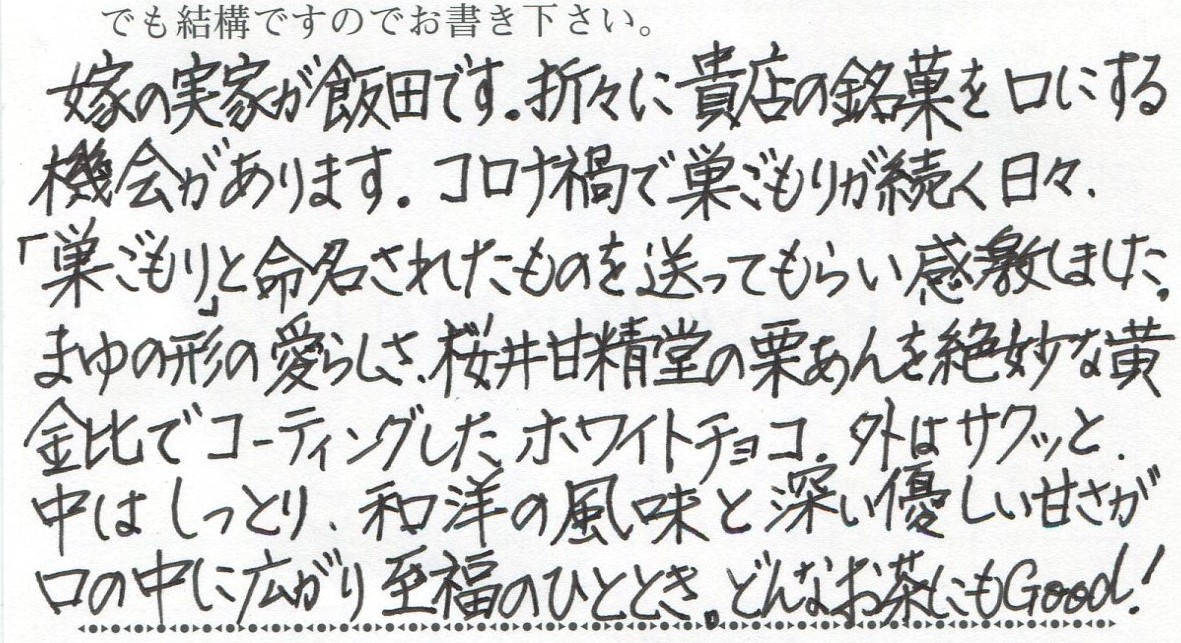 でも結構ですのでお書き下さい。
嫁の実家が飯田です。折々に貴店の銘菓を口にする
機会があります。コロナ禍で巣ごもりが続く日々、
「巣ごもり」と命名されたものを送ってもらい感激しました。
まゆの形の愛らしさ、桜井甘精堂の栗あんを絶妙な黄
金比でコーティングしたホワイトチョコ。外はサクッと、
中はしっとり、和洋の風味と深い優しい甘さが
口の中に広がり至福のひととき。どんなお茶にもGood!